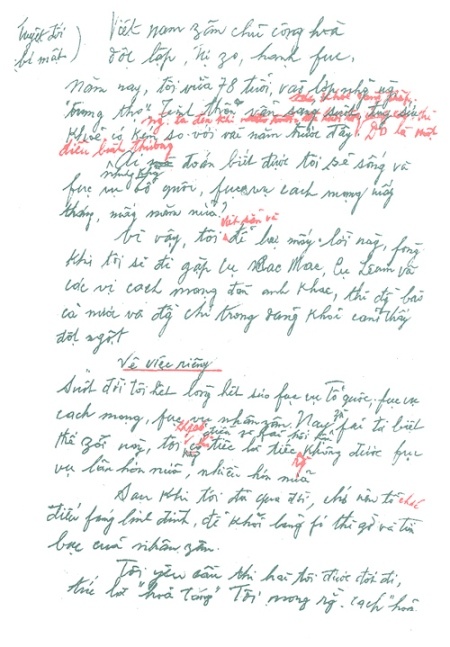 Tuyệt đối
bí mật
Việt nam zân chủ cộng hoà
độc lập, tự zo, hạnh fúc,
Năm nay, tôi vừa 78 tuổi, vào lớp những ng
"trung thọ". Tinh thần vẫn sáng suốt, thân thể
khoẻ có kém so với vài năm trước đây. Đó là một
điều bình thường
Ai mà đoán biết được tôi sẽ sống và
fục vụ tổ quốc, fục vụ cách mạng mấy
tháng, mấy năm nữa?
Vì vậy, tôi để lại mấy lời này, fòng
khi tôi sẽ đi gặp cụ Các Mác, cụ Lênin và
các vị cách mạng đàn anh khác, thì đồng bào
cả nước và đồng chí trong đảng khỏi cảm thấy
đột ngột
Về việc riêng
Suốt đời tôi hết lòng hết sức fục vụ Tổ quốc, fục vụ
cách mạng, fục vụ nhân zân. Nay zù fải từ biệt
thế zới này, tôi không có điều gì fải hối hận
tiếc là tiếc rằng không được fục
vụ lâu hơn nữa, nhiều hơn nữa
Sau khi tôi đã qua đời, chớ nên tổ chức
điếu fúng linh đình, để khỏi lãng fí thì giờ và tiền
bạc của nhân zân.
Tôi yêu cầu thi hài tôi được đốt đi,
tức là "hoả táng". Tôi mong rằng cách "hoả